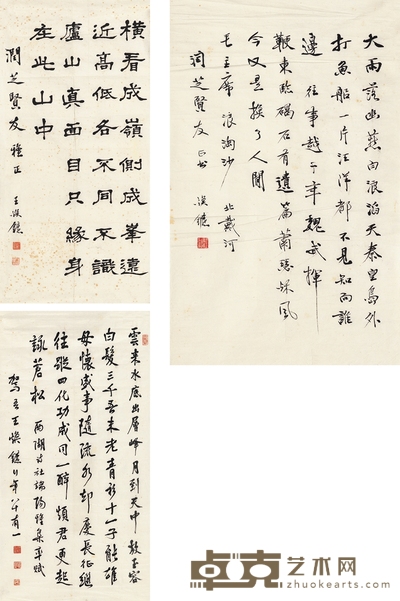 横看成嶺側成峯遠
近高低各不同不識
廬山真面目只緣身
在此山中
潤芝賢友雅正
王煥鑣
大雨落幽燕白浪滔天秦皇島外
打魚船一片汪洋都不見知向誰
邊 往事越千年魏武揮
鞭東臨碣石有遺篇蕭瑟秋風
今又是換了人間
毛主席浪淘沙 北戴河
潤芝賢友 煥鑣
雲来水底出層峰月到天中玉容
白髮三千吾未老青衫十一子能雄
毋懷盛事隨流水却慶長征繼
往蹤四化功成同一醉煩君更起
詠蒼松 西湖詩社端陽雅集率賦
駕吾王煥鑣年八十有一
卓克艺术网
www.zhuokearts.com